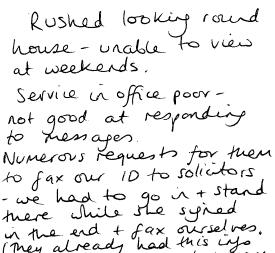 Rushed looking round
house - unable to view
at weekends.
Service in office poor -
not good at responding
to messages.
Numerous requests for them
to fax our ID to solicitors
- we had to go in + stand
there while she signed
in the end + fax ourselves.
(They already had this info